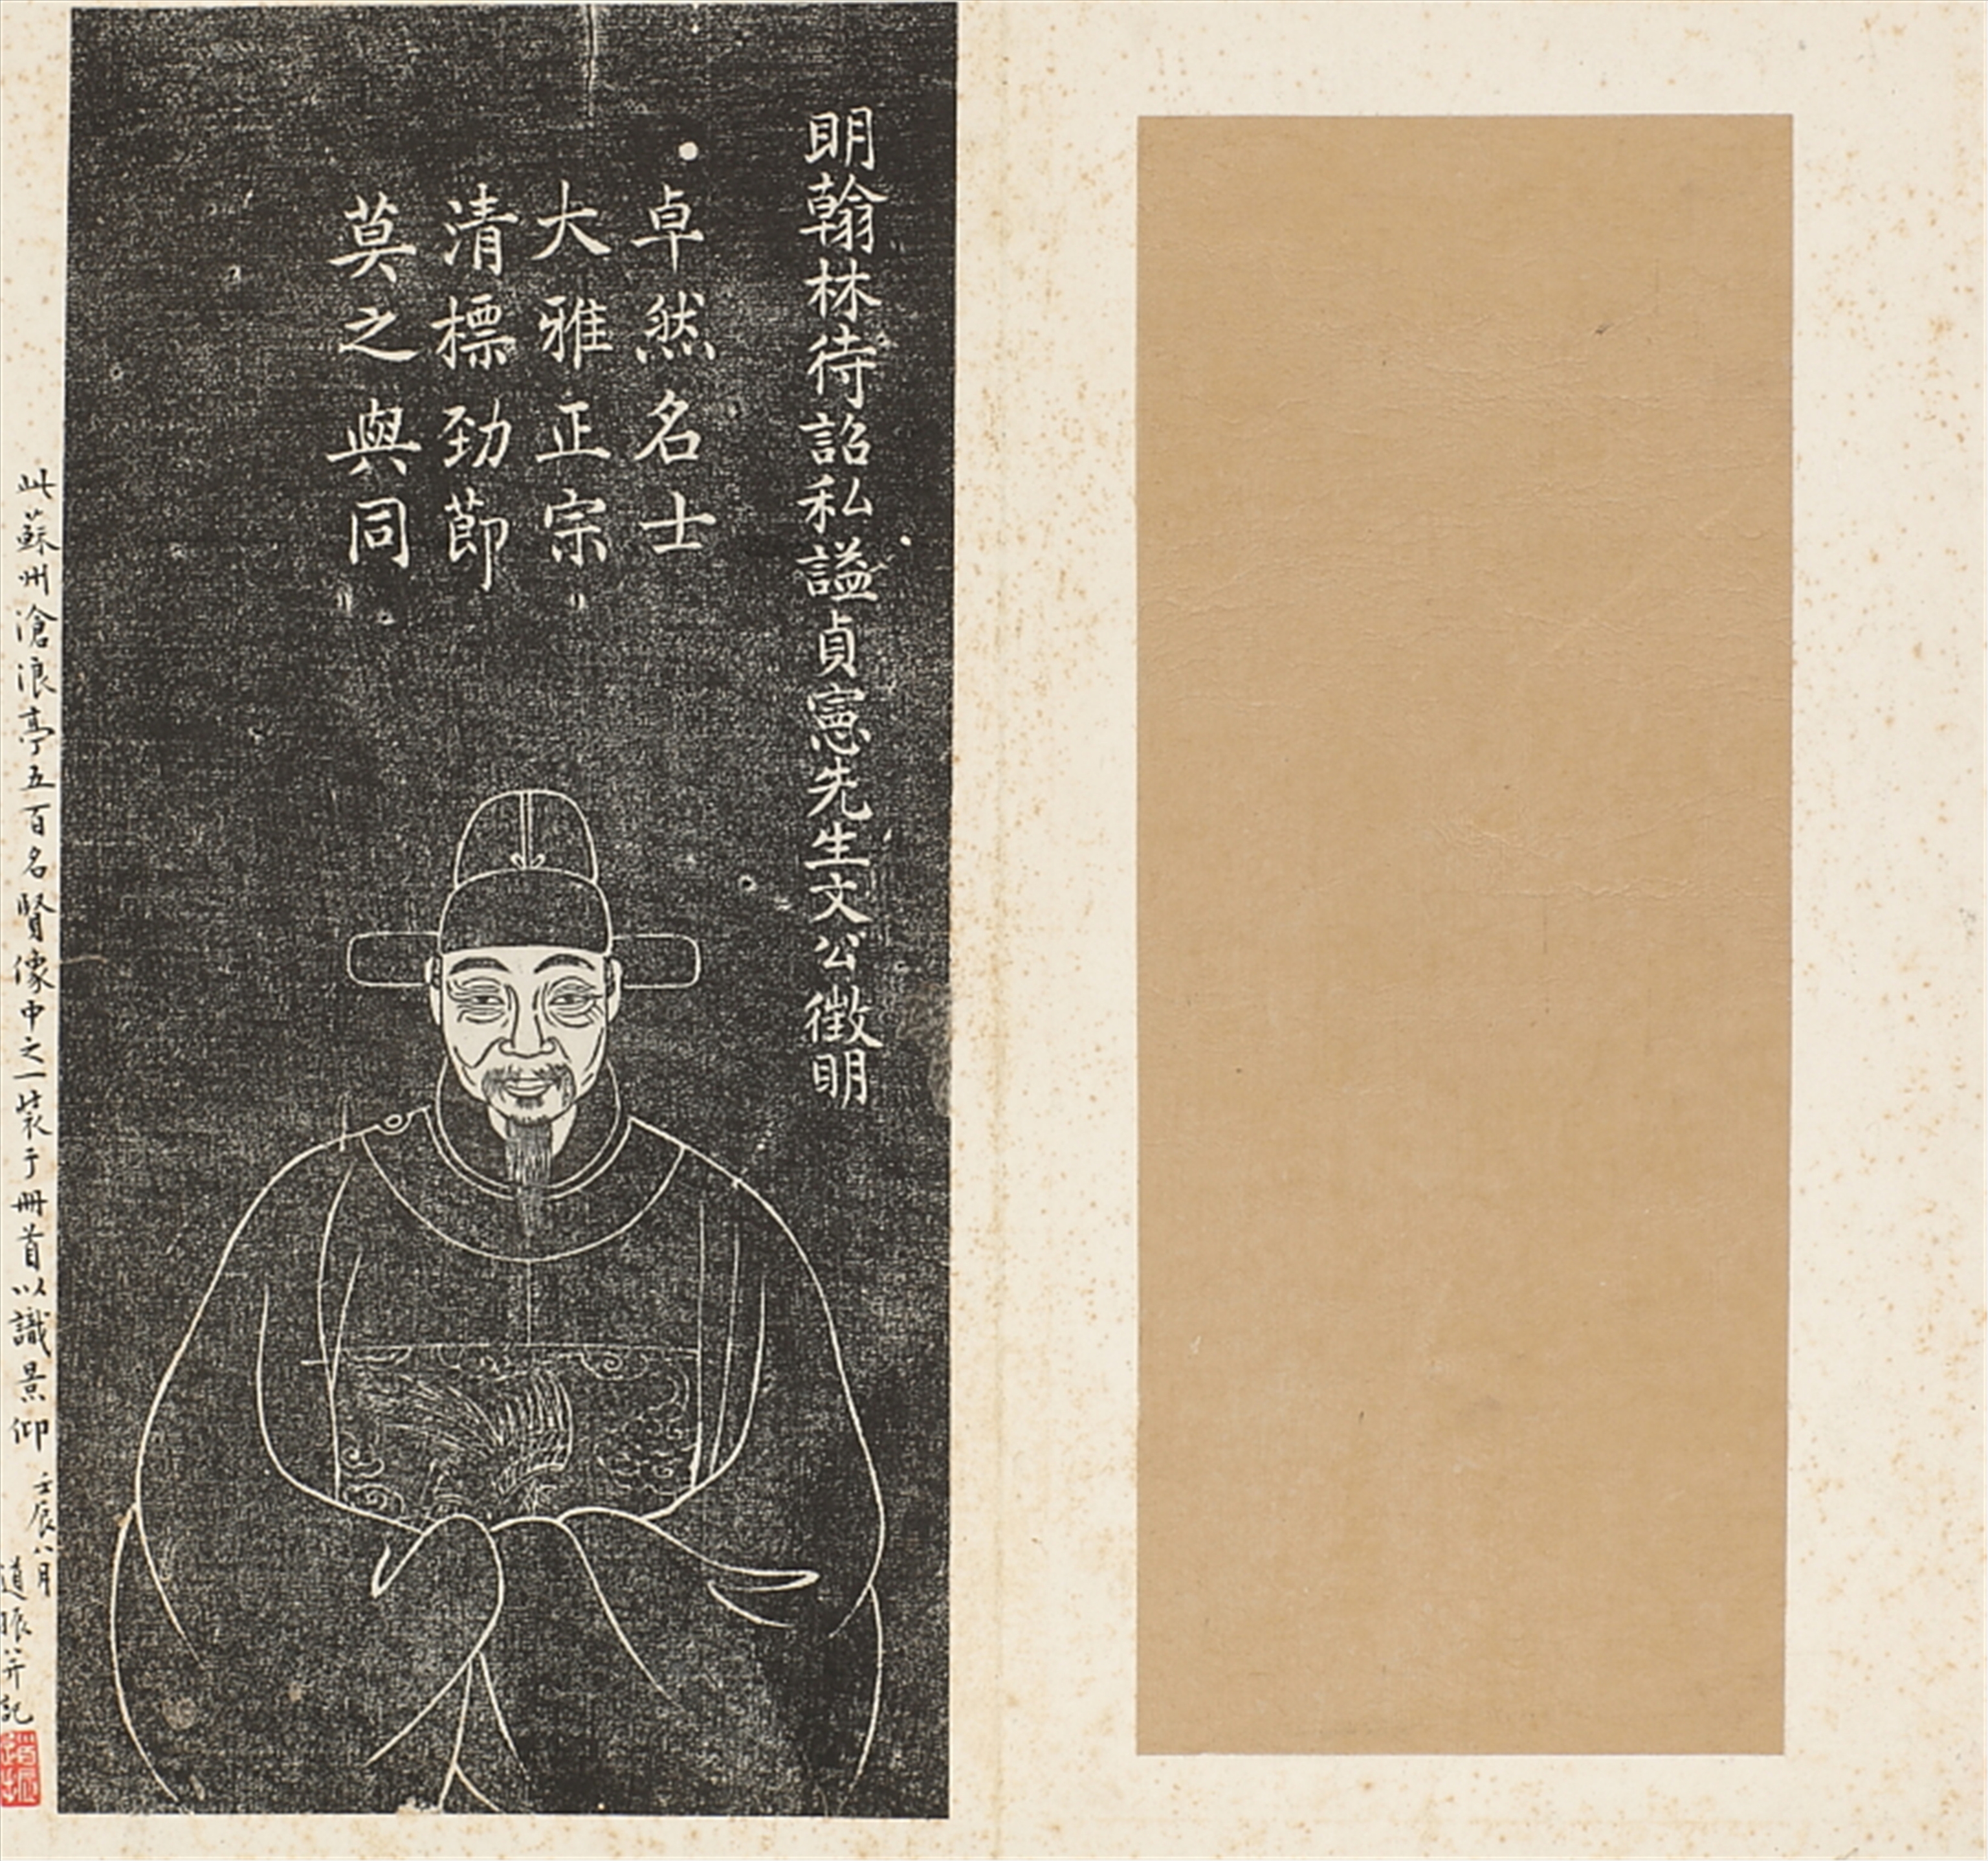 明翰林待詔私謚貞憲先生文公徵明
卓然名士
大雅正宗
清標勁節
莫之與同
此蘇州滄浪亭五百名賢像中之一裝于冊首以識景仰
壬辰八月
道賑并記